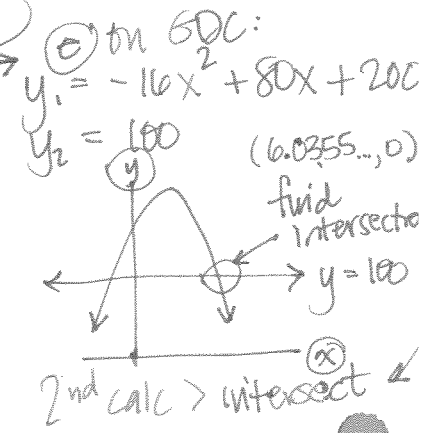 (c) on GDC:
y₁ = -16x² + 80x + 200
y₂ = 100
y
(6.0355..., 0)
find
intersectio
y = 100
x
2nd calc > intersect